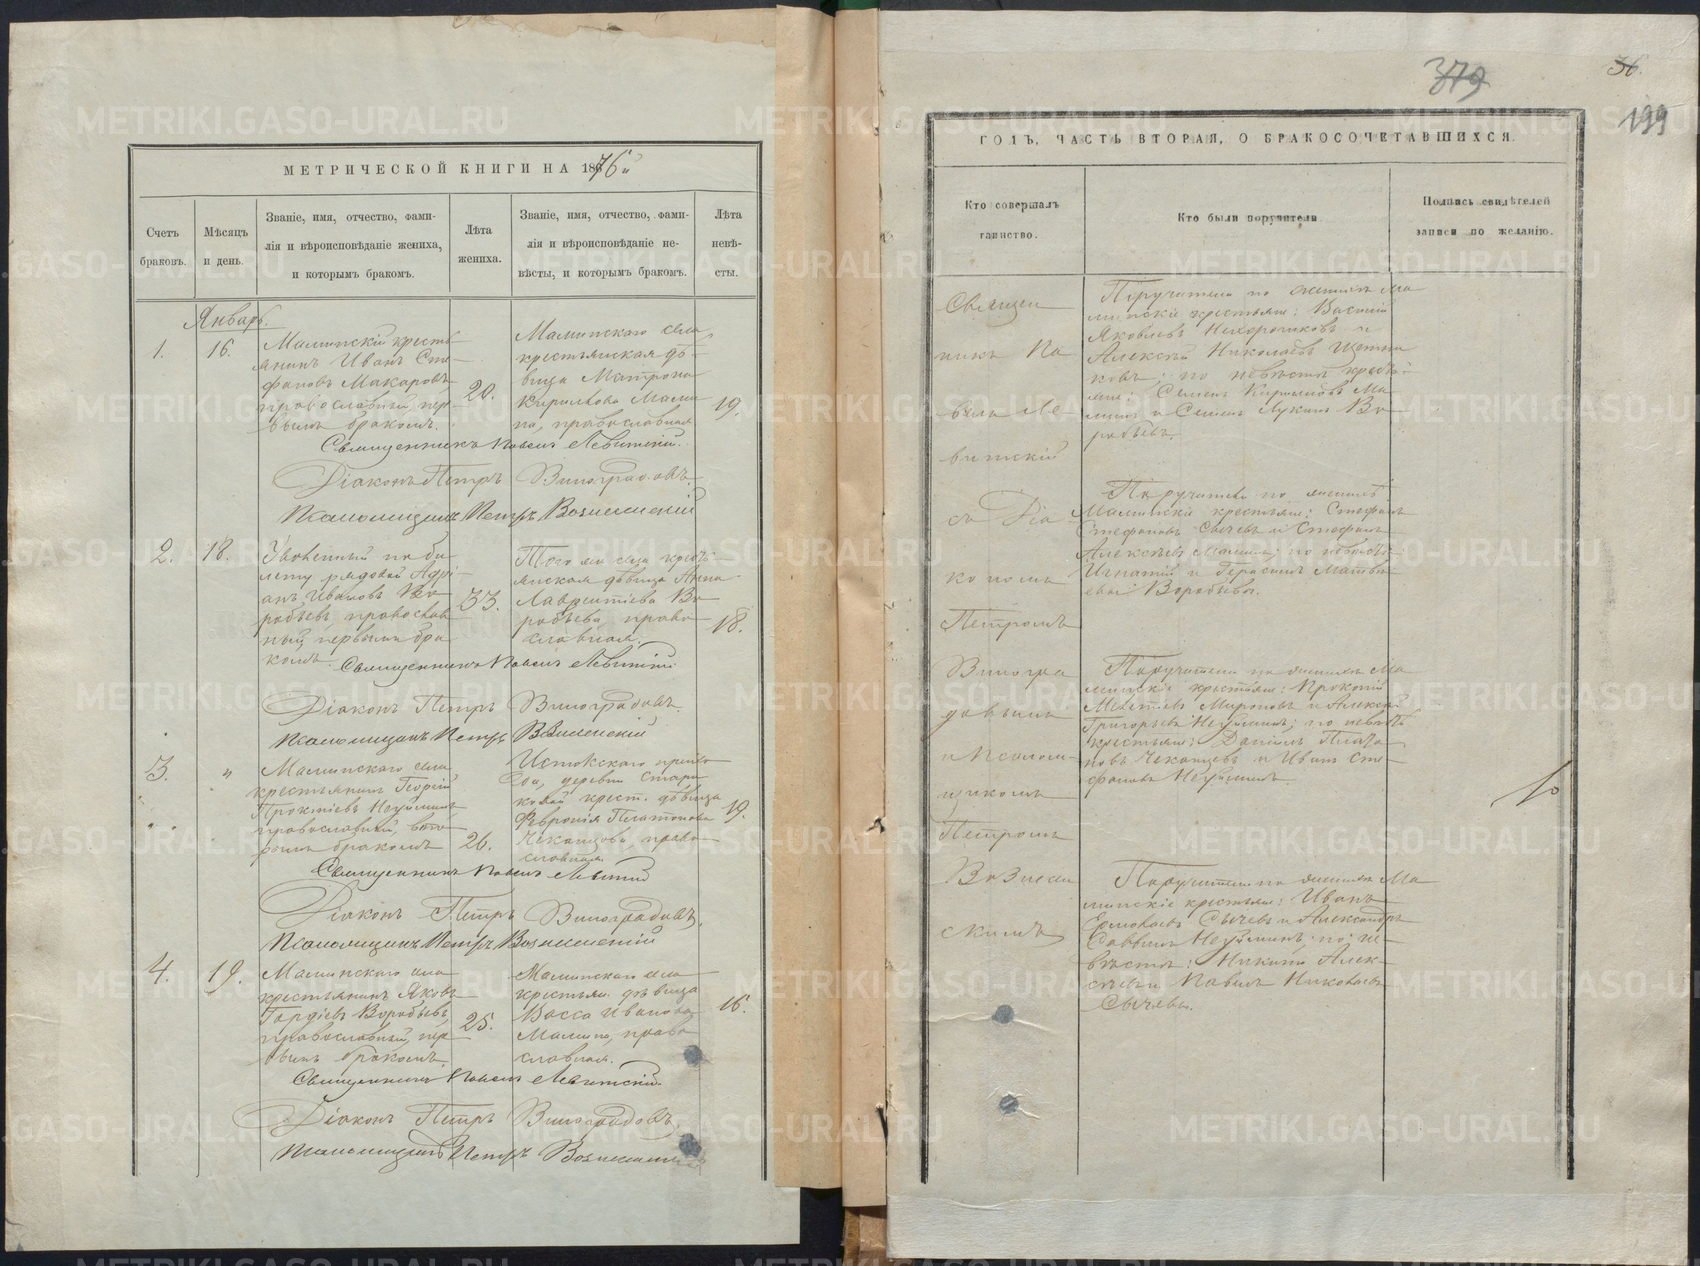 МЕТРИЧЕСКОЙ КНИГИ НА 1876й
Счетъ браковъ.
Мѣсяцъ и день.
Званіе, имя, отчество, фами-
лія и вѣроисповѣданіе жениха,
и которымъ бракомъ.
Лѣта
жениха.
Званіе, имя, отчество, фами-
лія и вѣроисповѣданіе не-
вѣсты, и которымъ бракомъ.
Лѣта
невѣ-
сты.
Январь.
1.
16.
Маминскій кресть-
янинъ Иванъ Сте-
фановъ Макаровъ
православный, пер-
вымъ бракомъ.
20.
Маминскаго села
крестьянская дѣ-
вица Матрона
Кирилова Мами-
на, православная
19.
Священникъ Павелъ Левитскій.
Діаконъ Петръ Виноградовъ.
Псаломщикъ Петръ Вознесенскій
2.
18.
Уволенный по би-
лету рядовой Адрі-
анъ Ивановъ Во-
робьевъ, православ-
ный, первымъ бра-
комъ.
33.
Того же села кресть-
янская дѣвица Анна
Лаврентіева Во-
робьева, право-
славная.
18.
Священникъ Павелъ Левитскій
Діаконъ Петръ Виноградовъ.
Псаломщикъ Петръ Вознесенскій
3.
"
Маминскаго села
крестьянинъ Георгій
Прокопіевъ Неуйминъ
православный, вто-
рымъ бракомъ
26.
Истокскаго прихо-
да, деревни Стари-
ковой крест. дѣвица
Февронія Платонова
Чеканцова, право-
славная
19.
Священникъ Павелъ Левитскій
Діаконъ Петръ Виноградовъ.
Псаломщикъ Петръ Вознесенскій
4.
19.
Маминскаго села
крестьянинъ Яковъ
Гордіевъ Воробьевъ
православный, пер-
вымъ бракомъ
25.
Маминскаго села
крестьян. дѣвица
Васса Иванова
Мамина, право-
славная.
16.
Священникъ Павелъ Левитскій.
Діаконъ Петръ Виноградовъ
Псаломщикъ Петръ Вознесенскій
379
36.
199
ГОДЪ, ЧАСТЬ ВТОРАЯ, О БРАКОСОЧЕТАВШИХСЯ.
Кто совершалъ
таинство.
Кто были поручители
Подпись свидѣтелей
записи по желанію.
Священ
никъ Па
велъ Ле
витскій
съ Діа-
кономъ
Петромъ
Виногра
довымъ
и Псалом-
щикомъ
Петромъ
Вознесен
скимъ
Поручители по женихѣ Ма
минскіе крестьяне: Василій
Яковлевъ Нехорошковъ и
Алексѣй Николаевъ Щетни
ковъ; по невѣстѣ кресть-
яне: Семенъ Кириловъ Ма-
минъ и Семенъ Лукинъ Во-
робьевъ.
Поручители по женихѣ
Маминскіе крестьяне: Стефанъ
Стефановъ Сычевъ и Стефанъ
Алексѣевъ Маминъ; по невѣстѣ
Игнатій и Герасимъ Матвѣ
евы Воробьевы.
Поручители по женихѣ Ма
минскіе крестьяне: Прокопій
Мироновъ и Алексѣй
Григорьевъ Неуйминъ; по невѣстѣ
крестьяне: Даніилъ Плато-
новъ Чеканцевъ и Иванъ Сте-
фановъ Неуйминъ
Поручители по женихѣ Ма
минскіе крестьяне: Иванъ
Сычевъ и Александръ
Саввинъ Неуйминъ; по не-
вѣстѣ: Никита Алек-
сѣевъ и Павелъ Николаевъ
Сычевы.
METRIKI.GASO-URAL.RU